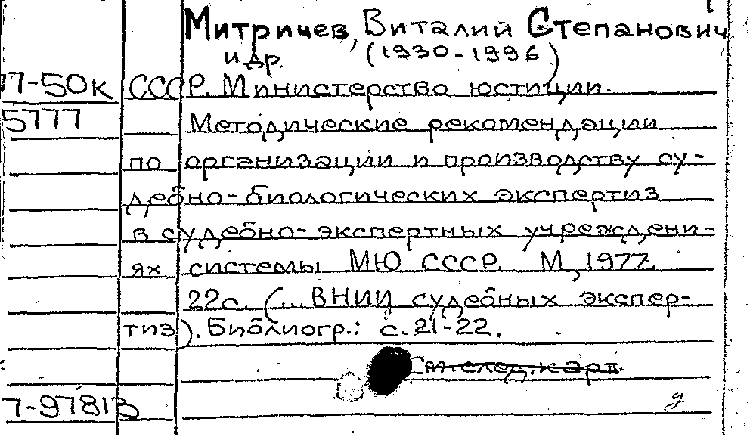 Митричев, Виталий Степанович
и др. (1930-1996)
7-50к СССР. Министерство юстиции.
5777 Методические рекомендации
по организации и производству су-
дебно-биологических экспертиз
в судебно-экспертных учреждени-
ях системы МЮ СССР. М, 1977.
22с. (... ВНИИ судебных экспер-
тиз). Библиогр.: с. 21-22.
См. след. карт.
7-97813